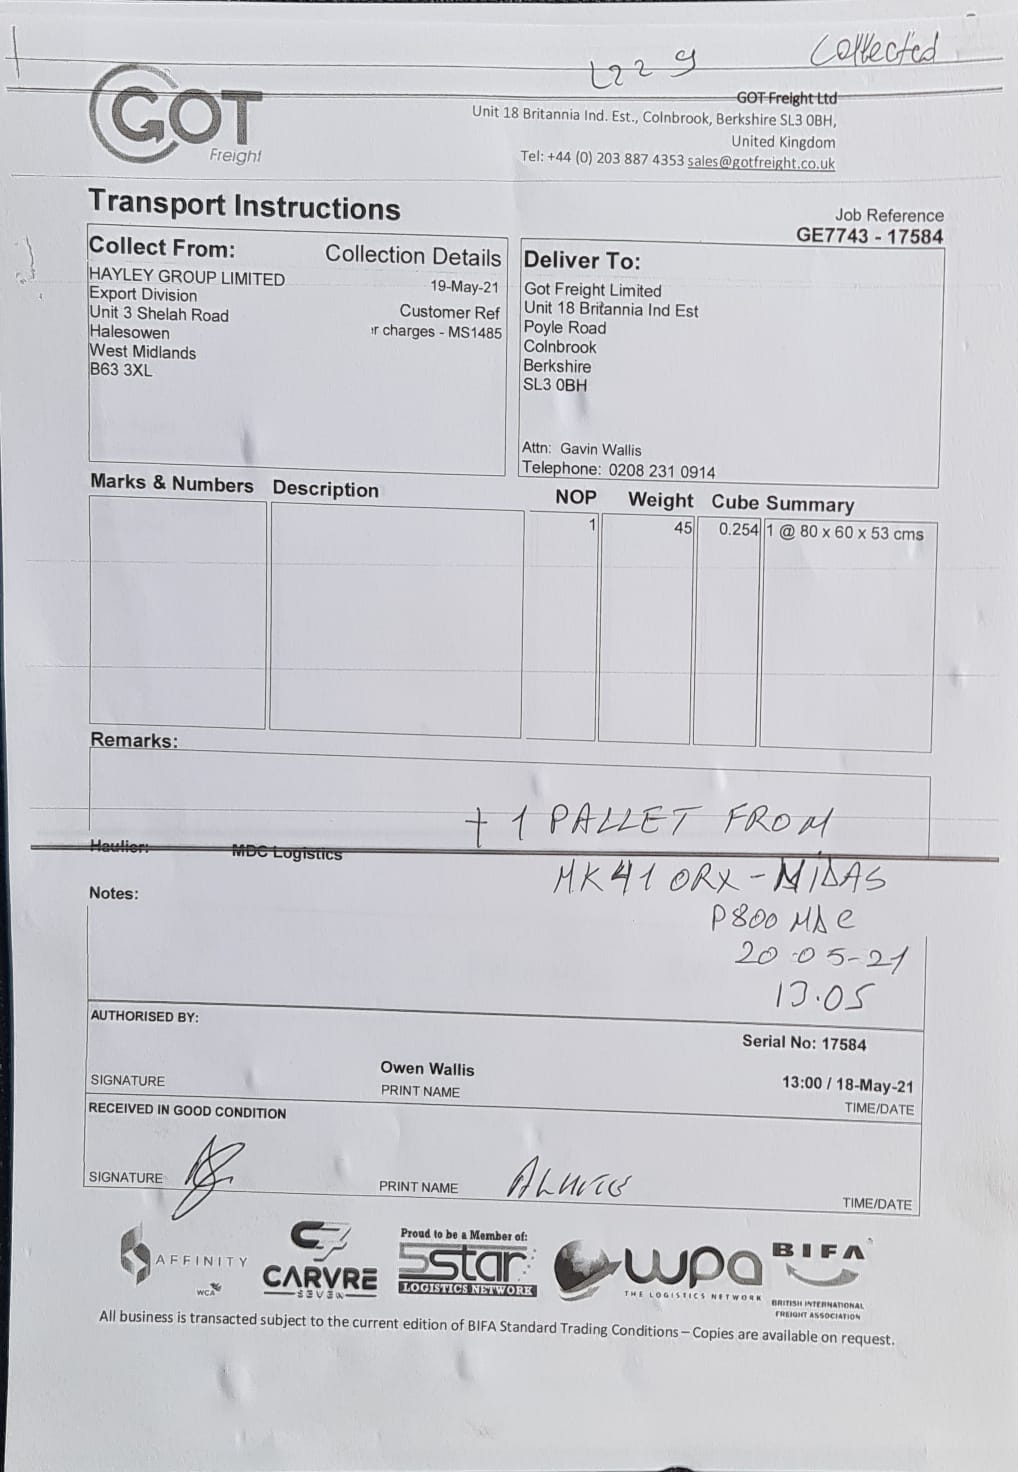 L229 Collected
GOT
Freight
GOT Freight Ltd
Unit 18 Britannia Ind. Est., Colnbrook, Berkshire SL3 0BH,
United Kingdom
Tel: +44 (0) 203 887 4353 sales@gotfreight.co.uk
Transport Instructions
Job Reference
GE7743 - 17584
Collect From: Collection Details
HAYLEY GROUP LIMITED
Export Division
Unit 3 Shelah Road
Halesowen
West Midlands
B63 3XL
19-May-21
Customer Ref
ir charges - MS1485
Deliver To:
Got Freight Limited
Unit 18 Britannia Ind Est
Poyle Road
Colnbrook
Berkshire
SL3 0BH
Attn: Gavin Wallis
Telephone: 0208 231 0914
Marks & Numbers Description NOP Weight Cube Summary
1 45 0.254 1 @ 80 x 60 x 53 cms
Remarks:
+ 1 PALLET FROM
Haulier: MDC Logistics
MK41 0RX - MIDAS
Notes:
P800 MDC
20-05-21
13.05
AUTHORISED BY:
Serial No: 17584
Owen Wallis
SIGNATURE PRINT NAME
13:00 / 18-May-21
TIME/DATE
RECEIVED IN GOOD CONDITION
SIGNATURE PRINT NAME
TIME/DATE
AFFINITY
WCA
CARVRE
S3V3N
Proud to be a Member of:
5star
LOGISTICS NETWORK
wpa
THE LOGISTICS NETWORK
BIFA
BRITISH INTERNATIONAL
FREIGHT ASSOCIATION
All business is transacted subject to the current edition of BIFA Standard Trading Conditions – Copies are available on request.